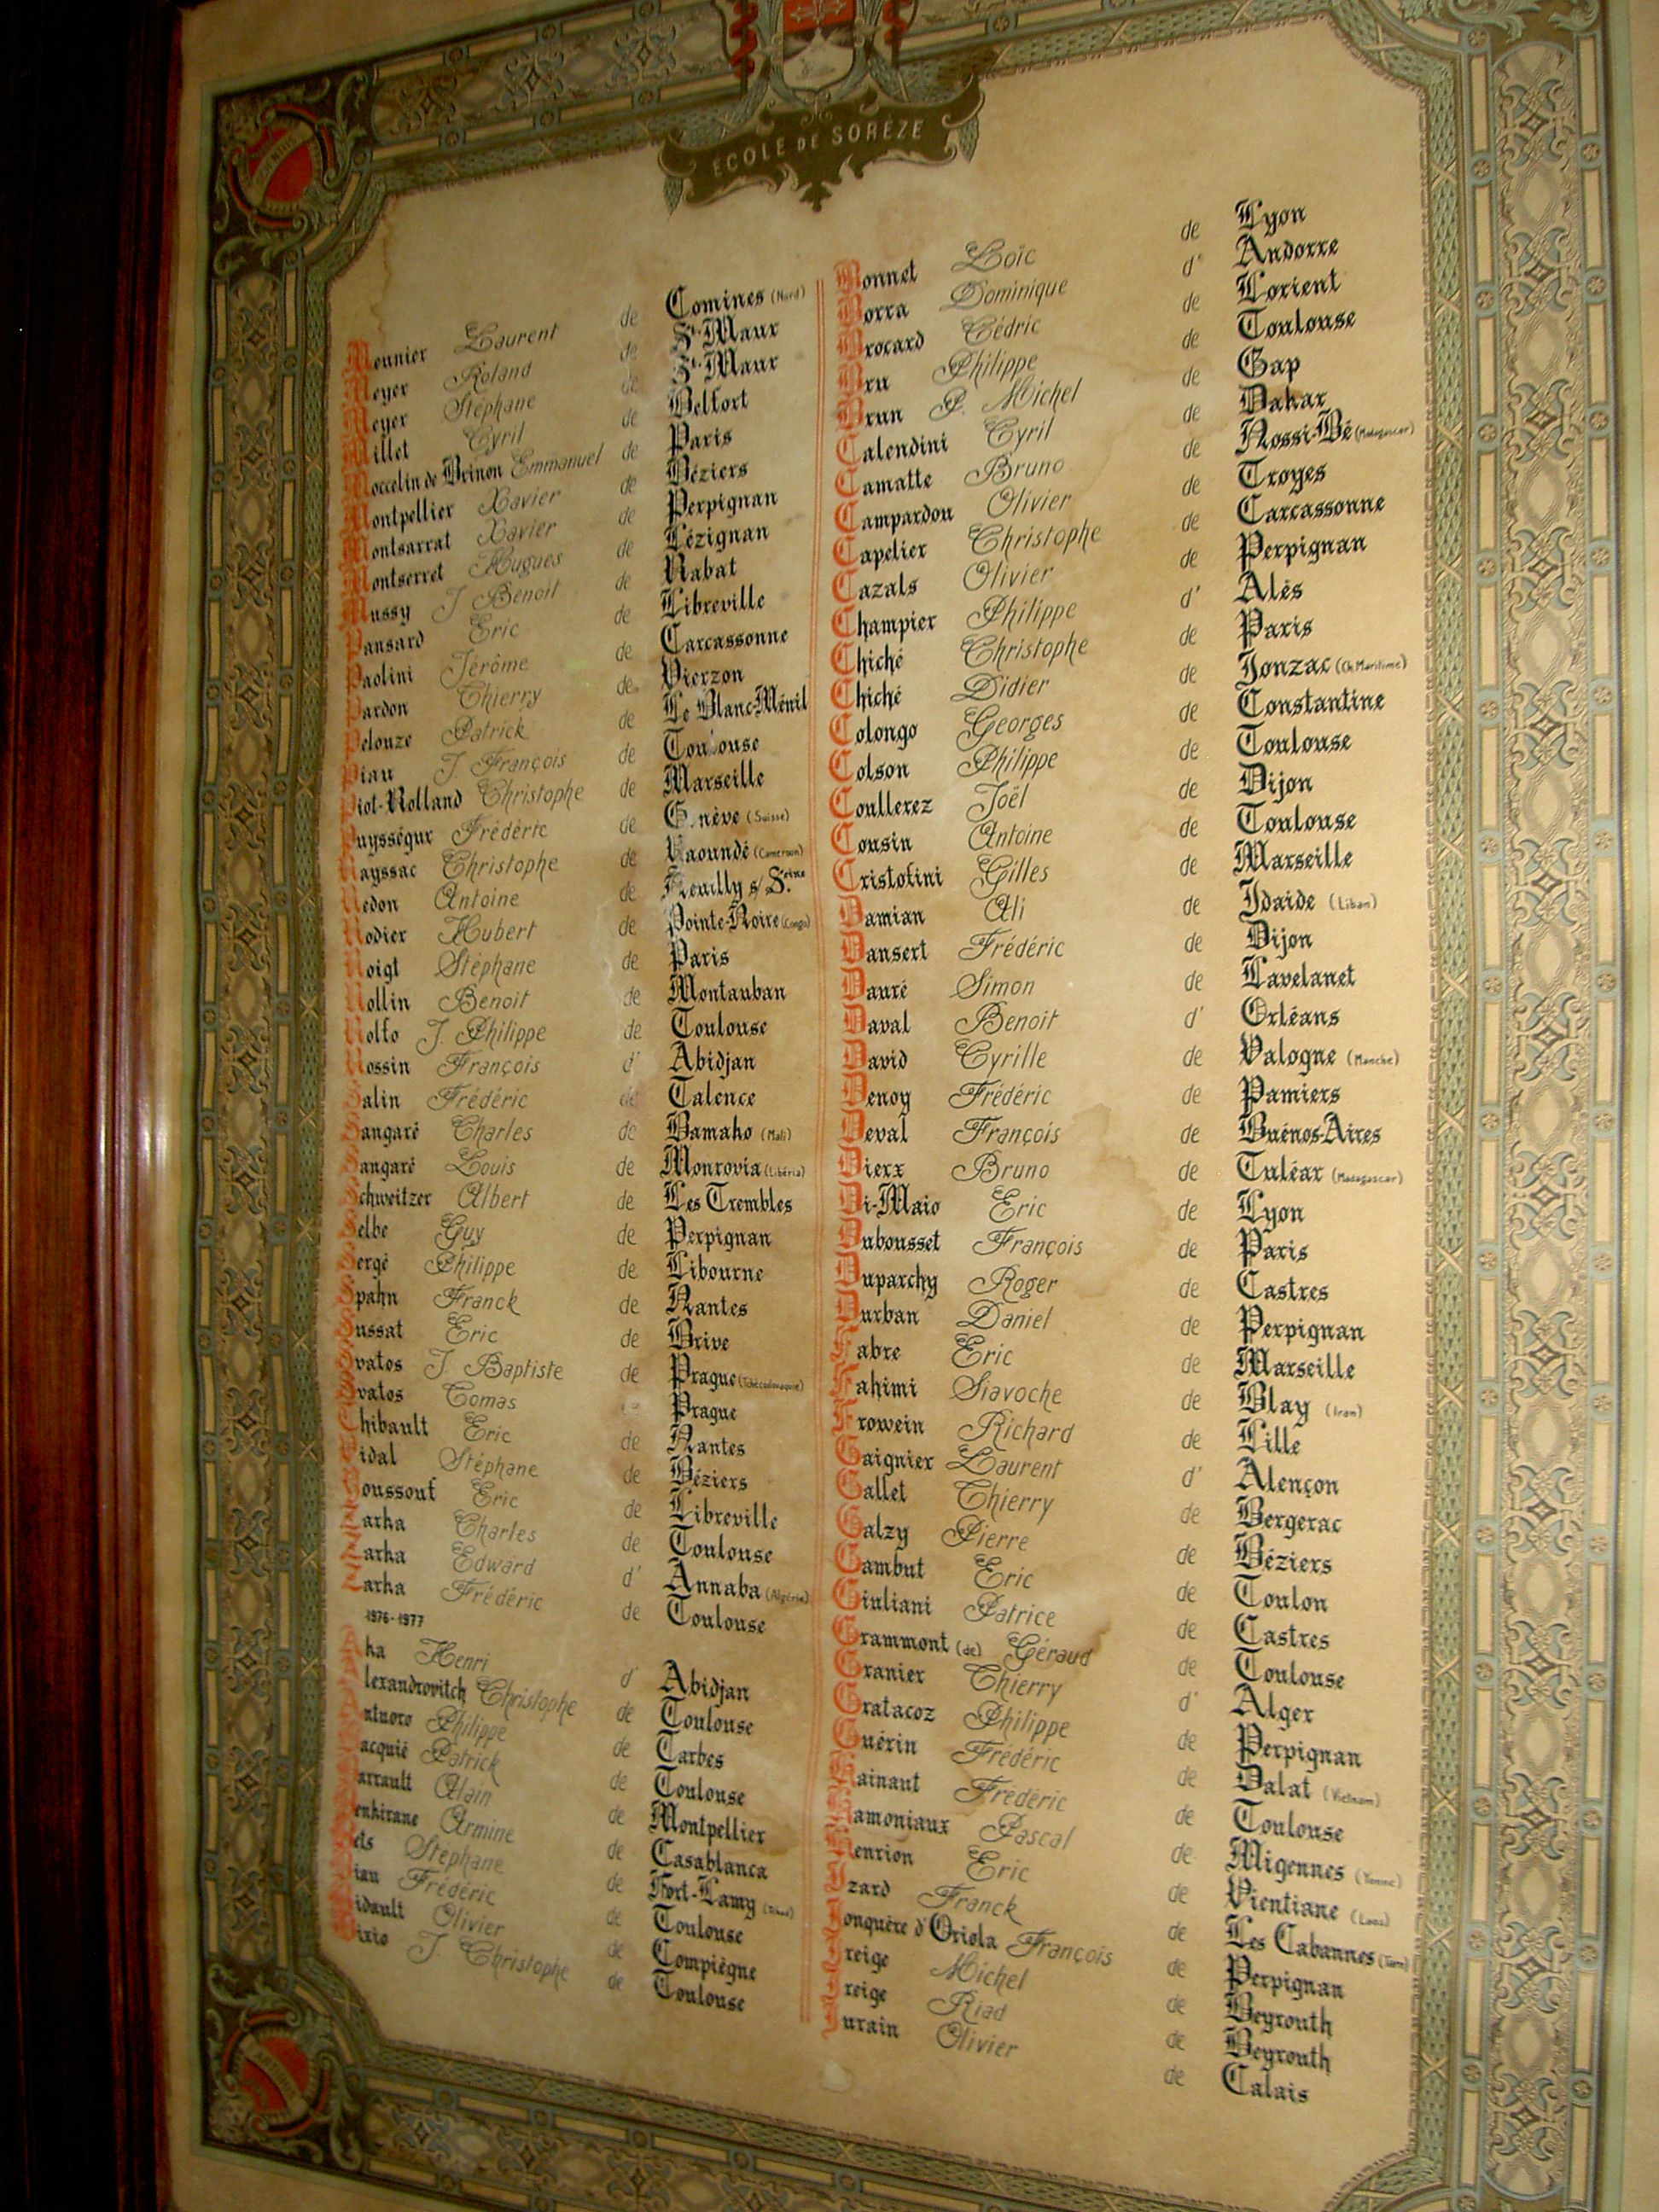 ECOLE DE SORÈZE
Meunier Laurent de Comines (Nord)
Meyer Roland de St-Maur
Meyer Stéphane de St-Maur
Millet Cyril de Belfort
Moccelin de Brinon Emmanuel de Paris
Montpellier Xavier de Béziers
Montsarrat Xavier de Perpignan
Montserret Hugues de Lézignan
Mussy J Benoit de Rabat
Pansard Eric de Libreville
Paolini Jérôme de Carcassonne
Pardon Thierry de Vierzon
Pelouze Patrick de Le Blanc-Ménil
Piau J. François de Toulouse
Piot-Rolland Christophe de Marseille
Puységur Frédéric de Genève (Suisse)
Rayssac Christophe de Yaoundé (Cameroun)
Redon Antoine de Neuilly s/ Seine
Rodier Hubert de Pointe-Noire (Congo)
Roigt Stéphane de Paris
Rollin Benoit de Montauban
Rolfo J. Philippe de Toulouse
Rossin François d' Abidjan
Salin Frédéric de Talence
Sangaré Charles de Bamako (Mali)
Sangaré Louis de Monrovia (Libéria)
Schweitzer Albert de Les Trembles
Selbe Guy de Perpignan
Sergé Philippe de Libourne
Spahn Franck de Nantes
Sussat Eric de Brive
Svatos J Baptiste de Prague (Tchécoslovaquie)
Svatos Tomas de Prague
Thibault Eric de Nantes
Vidal Stéphane de Béziers
Youssouf Eric de Libreville
Zarka Charles de Toulouse
Zarka Edward d' Annaba (Algérie)
Zarka Frédéric de Toulouse
1976-1977
Aka Henri d' Abidjan
Alexandrovitch Christophe de Toulouse
Antuoro Philippe de Tarbes
Bacquié Patrick de Toulouse
Barrault Alain de Montpellier
Benkirane Armine de Casablanca
Bets Stéphane de Fort-Lamy (Tchad)
Bian Frédéric de Toulouse
Bidault Olivier de Compiègne
Birio J Christophe de Toulouse
Bonnet Loïc de Lyon
Borra Dominique d' Andorre
Brocard Cédric de Lorient
Bru Philippe de Toulouse
Brun P. Michel de Gap
Calendini Cyril de Dakar
Camatte Bruno de Nossi-Bé (Madagascar)
Campardou Olivier de Troyes
Capelier Christophe de Carcassonne
Cazals Olivier de Perpignan
Champier Philippe d' Alès
Chiché Christophe de Paris
Chiché Didier de Jonzac (Ch Maritime)
Colongo Georges de Constantine
Colson Philippe de Toulouse
Coullerez Joël de Dijon
Cousin Antoine de Toulouse
Cristofini Gilles de Marseille
Damian Ali de Jdaide (Liban)
Dansert Frédéric de Dijon
Dauré Simon de Lavelanet
Daval Benoit d' Orléans
David Cyrille de Valogne (Manche)
Denoy Frédéric de Pamiers
Deval François de Buénos-Aires
Dierx Bruno de Tuléar (Madagascar)
Di-Maio Eric de Lyon
Dubousset François de Paris
Duparchy Roger de Castres
Durban Daniel de Perpignan
Fabre Eric de Marseille
Fahimi Siavoche de Blay (Iran)
Frowein Richard de Lille
Gaignier Laurent d' Alençon
Gallet Thierry de Bergerac
Galzy Pierre de Béziers
Gambut Eric de Toulon
Giuliani Patrice de Castres
Grammont (de) Géraud de Toulouse
Granier Thierry d' Alger
Gratacoz Philippe de Perpignan
Guérin Frédéric de Dalat (Vietnam)
Hainaut Frédéric de Toulouse
Hamoniaux Pascal de Migennes (Yonne)
Henrion Eric de Vientiane (Laos)
Izard Franck de Les Cabannes (Tarn)
Jonquère d'Oriola François de Perpignan
Jreige Michel de Beyrouth
Jreige Riad de Beyrouth
Jurain Olivier de Calais